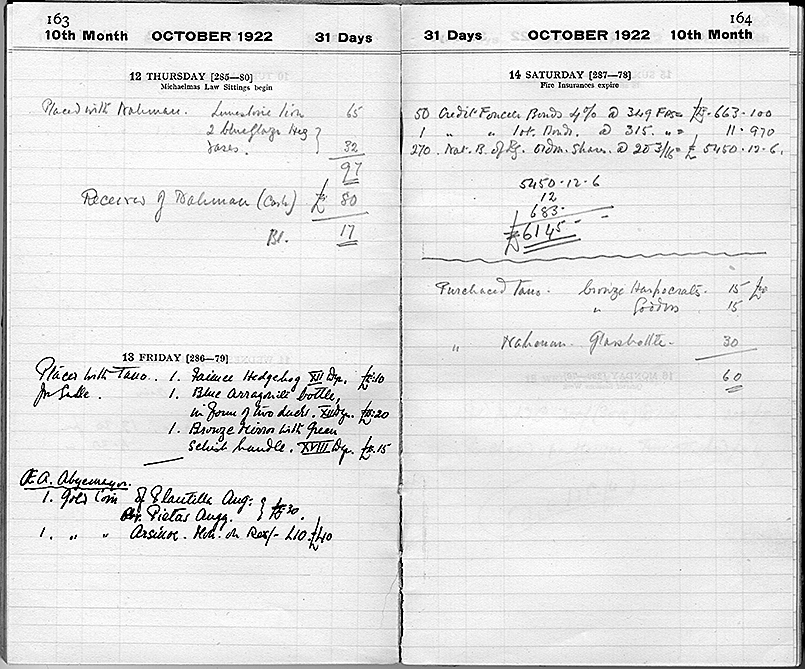 163
10th Month OCTOBER 1922 31 Days
12 THURSDAY [285—80]
Michaelmas Law Sittings begin
Placed with Nahman. Limestone Lion 65
2 blue glaze Heg
Vases. 32
97
Received of Nahman (Cash) £ 80
Bl. 17
13 FRIDAY [286—79]
Placed with Tano. 1. Faience Hedgehog XII Dyn. £E:10
for Sale. 1. Blue Arragonite bottle,
in form of two ducks. XII Dyn. £E:20
1. Bronze Mirror with Green
Schist handle. XVIII Dyn. £E:15
E.A. Abyemayor.
1. Gold Coin of Plautilla Aug:
Pietas Augg. £E 30.
1. " " Arsinoe. £40
164
31 Days OCTOBER 1922 10th Month
14 SATURDAY [287—78]
Fire Insurances expire
50 Credit Foncier Bonds 4% @ 349 Fcs = £E. 663.100
1 " " Lot. Bonds. @ 315. " = 11.970
270 Nat. B. of Eg. Ordin. Shares @ 20 3/16 = £ 5450.12.6.
5450.12.6
12
683
£6145
Purchased Tano. bronze Harpocrats. 15 £E
" Goddess 15
" Nahman. Glass bottle. 30
60